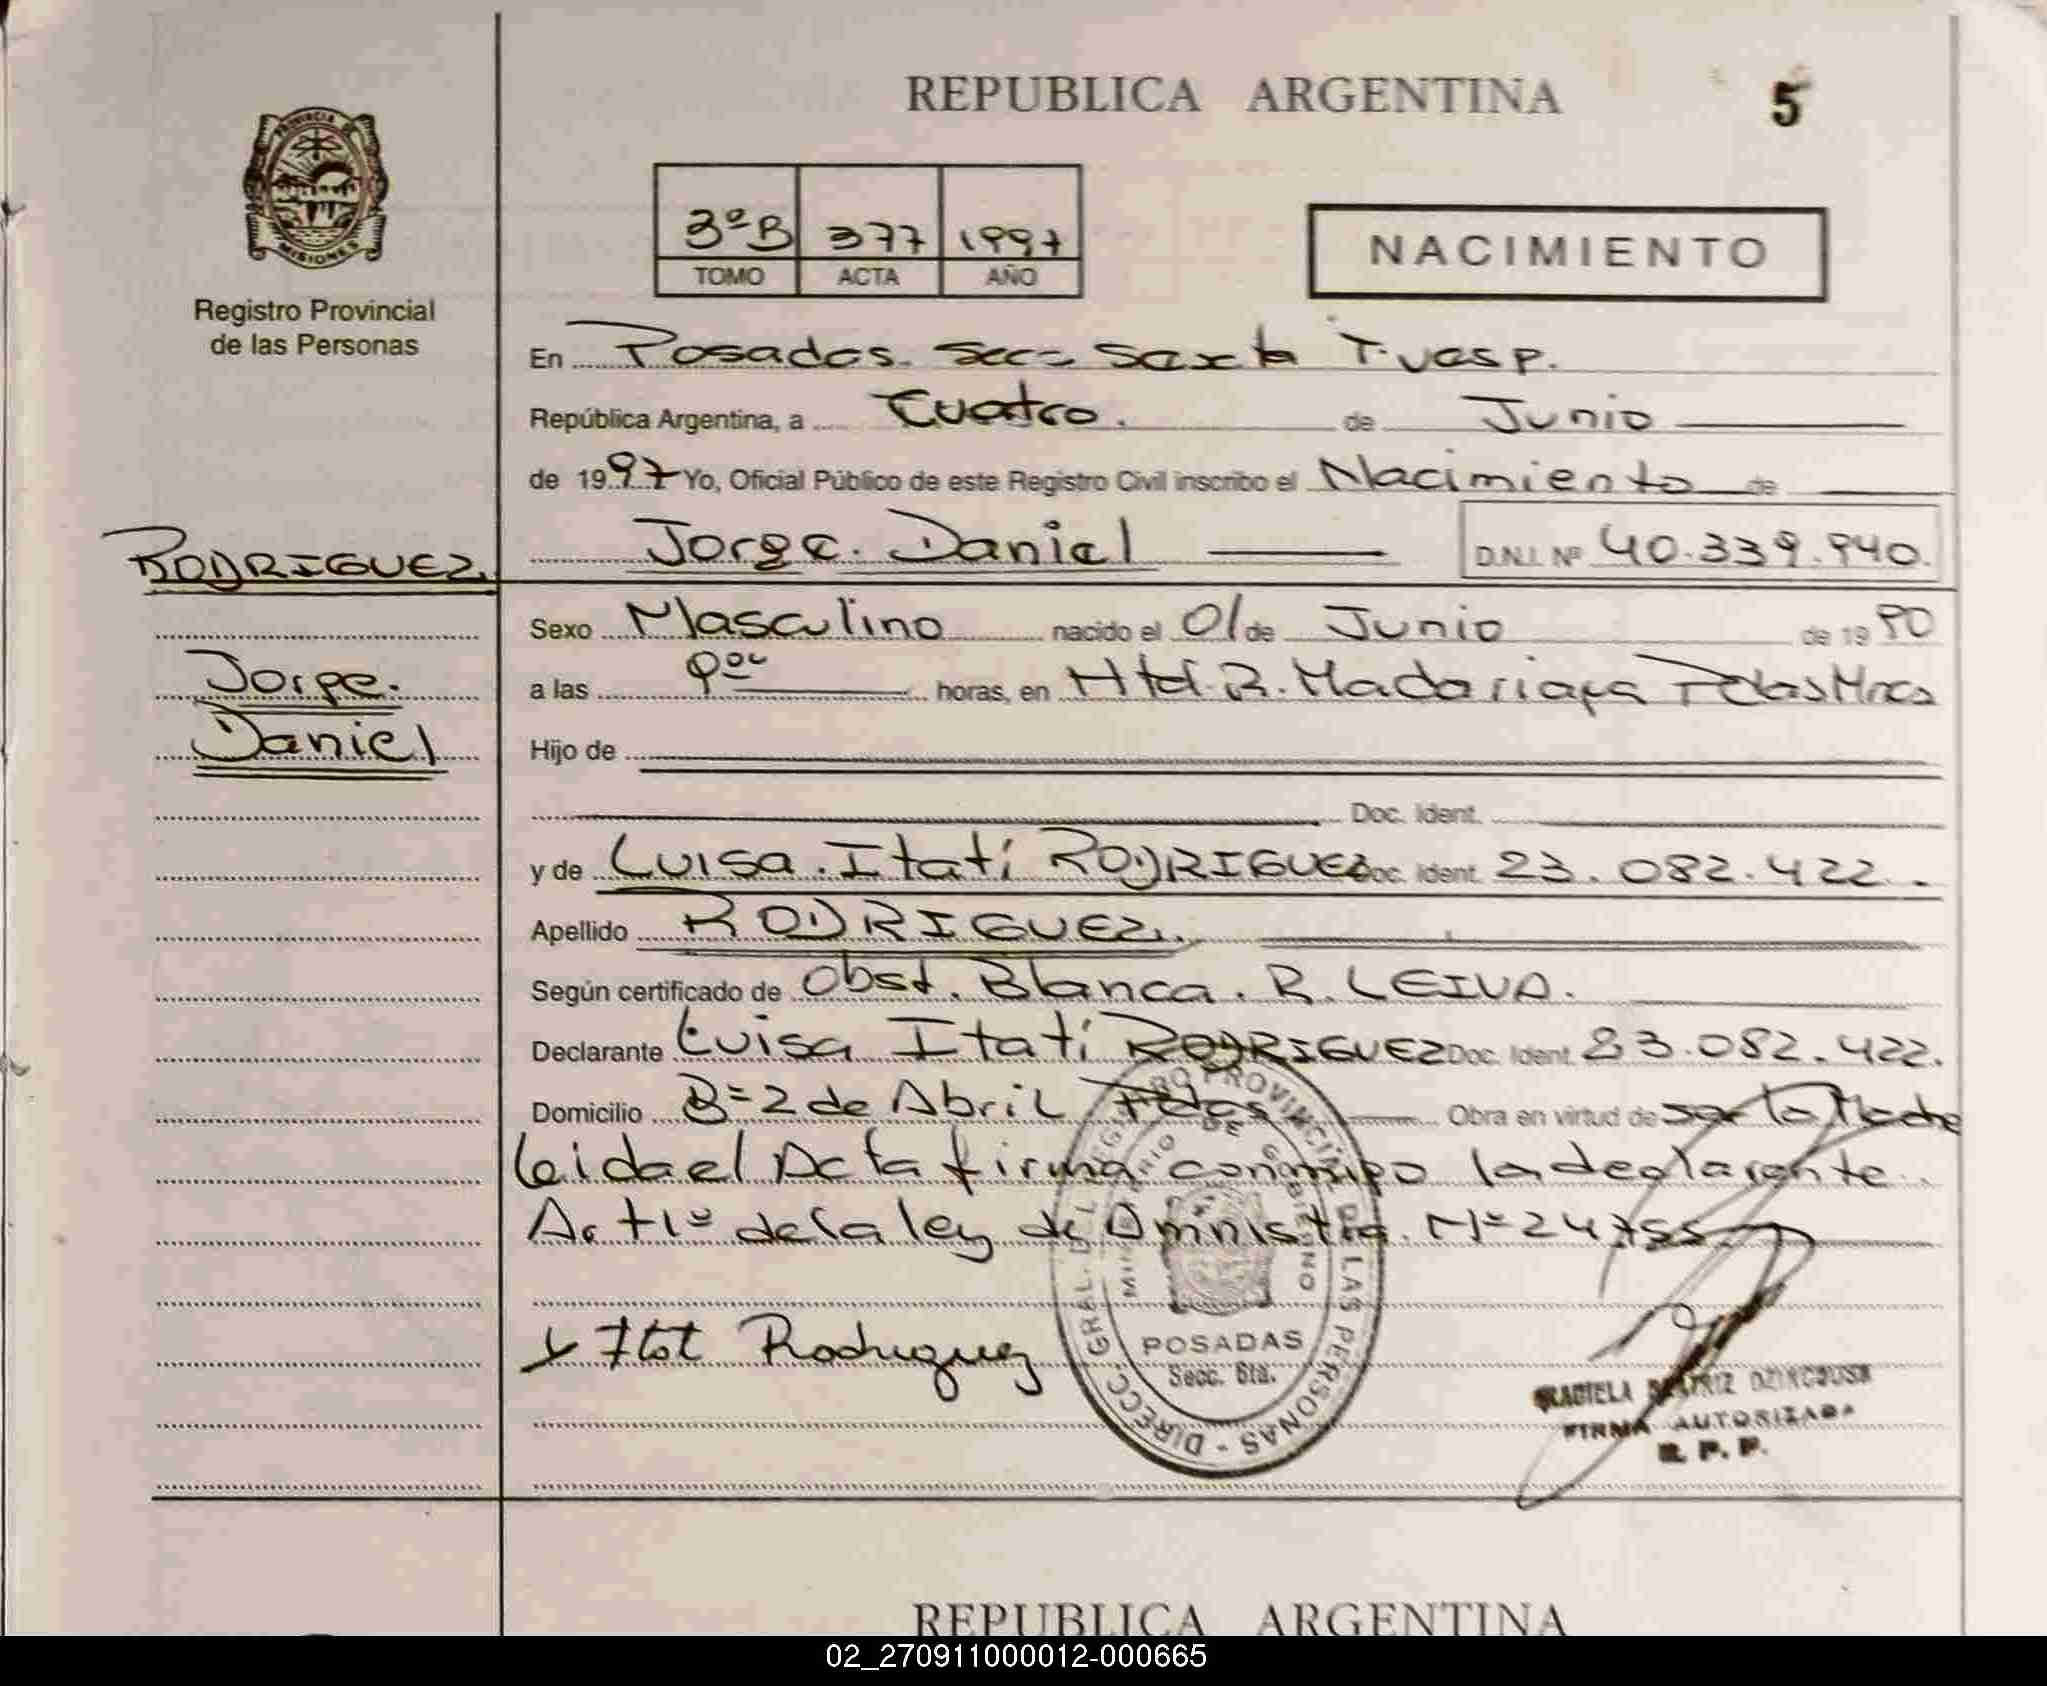 REPUBLICA ARGENTINA
5
PROVINCIA DE
MISIONES
Registro Provincial
de las Personas
3º B 377 1997
TOMO ACTA AÑO
NACIMIENTO
En Posadas. Secc Sexta T. vesp.
República Argentina, a Cuatro. de Junio
de 1997 Yo, Oficial Público de este Registro Civil inscribo el Nacimiento de
RODRIGUEZ
Jorge. Daniel D.N.I. Nº 40.339.940.
Sexo Masculino nacido el 01 de Junio de 1990
Jorge.
a las 9 horas, en Htal. R. Madariaga Pdas Mnes
Daniel
Hijo de
Doc. Ident.
y de Luisa. Itatí RODRIGUEZ Doc. Ident. 23.082.422.
Apellido RODRIGUEZ.
Según certificado de Obst. Blanca. R. LEIVA.
Declarante Luisa Itatí RODRIGUEZ Doc. Ident. 23.082.422.
Domicilio Bº 2 de Abril Pdas Obra en virtud de ser la Madre
leida el Acta firma conmigo la declarante.
Art 1º de la ley de Amnistia. Nº 24.755
Itat Rodriguez
DIRECC. GRAL. DEL REGISTRO PROVINCIAL DE LAS PERSONAS -
MINISTERIO DE GOBIERNO
POSADAS
Secc. 6ta.
GRACIELA BEATRIZ
FIRMA AUTORIZADA
R. P. P.
REPUBLICA ARGENTINA
02_270911000012-000665